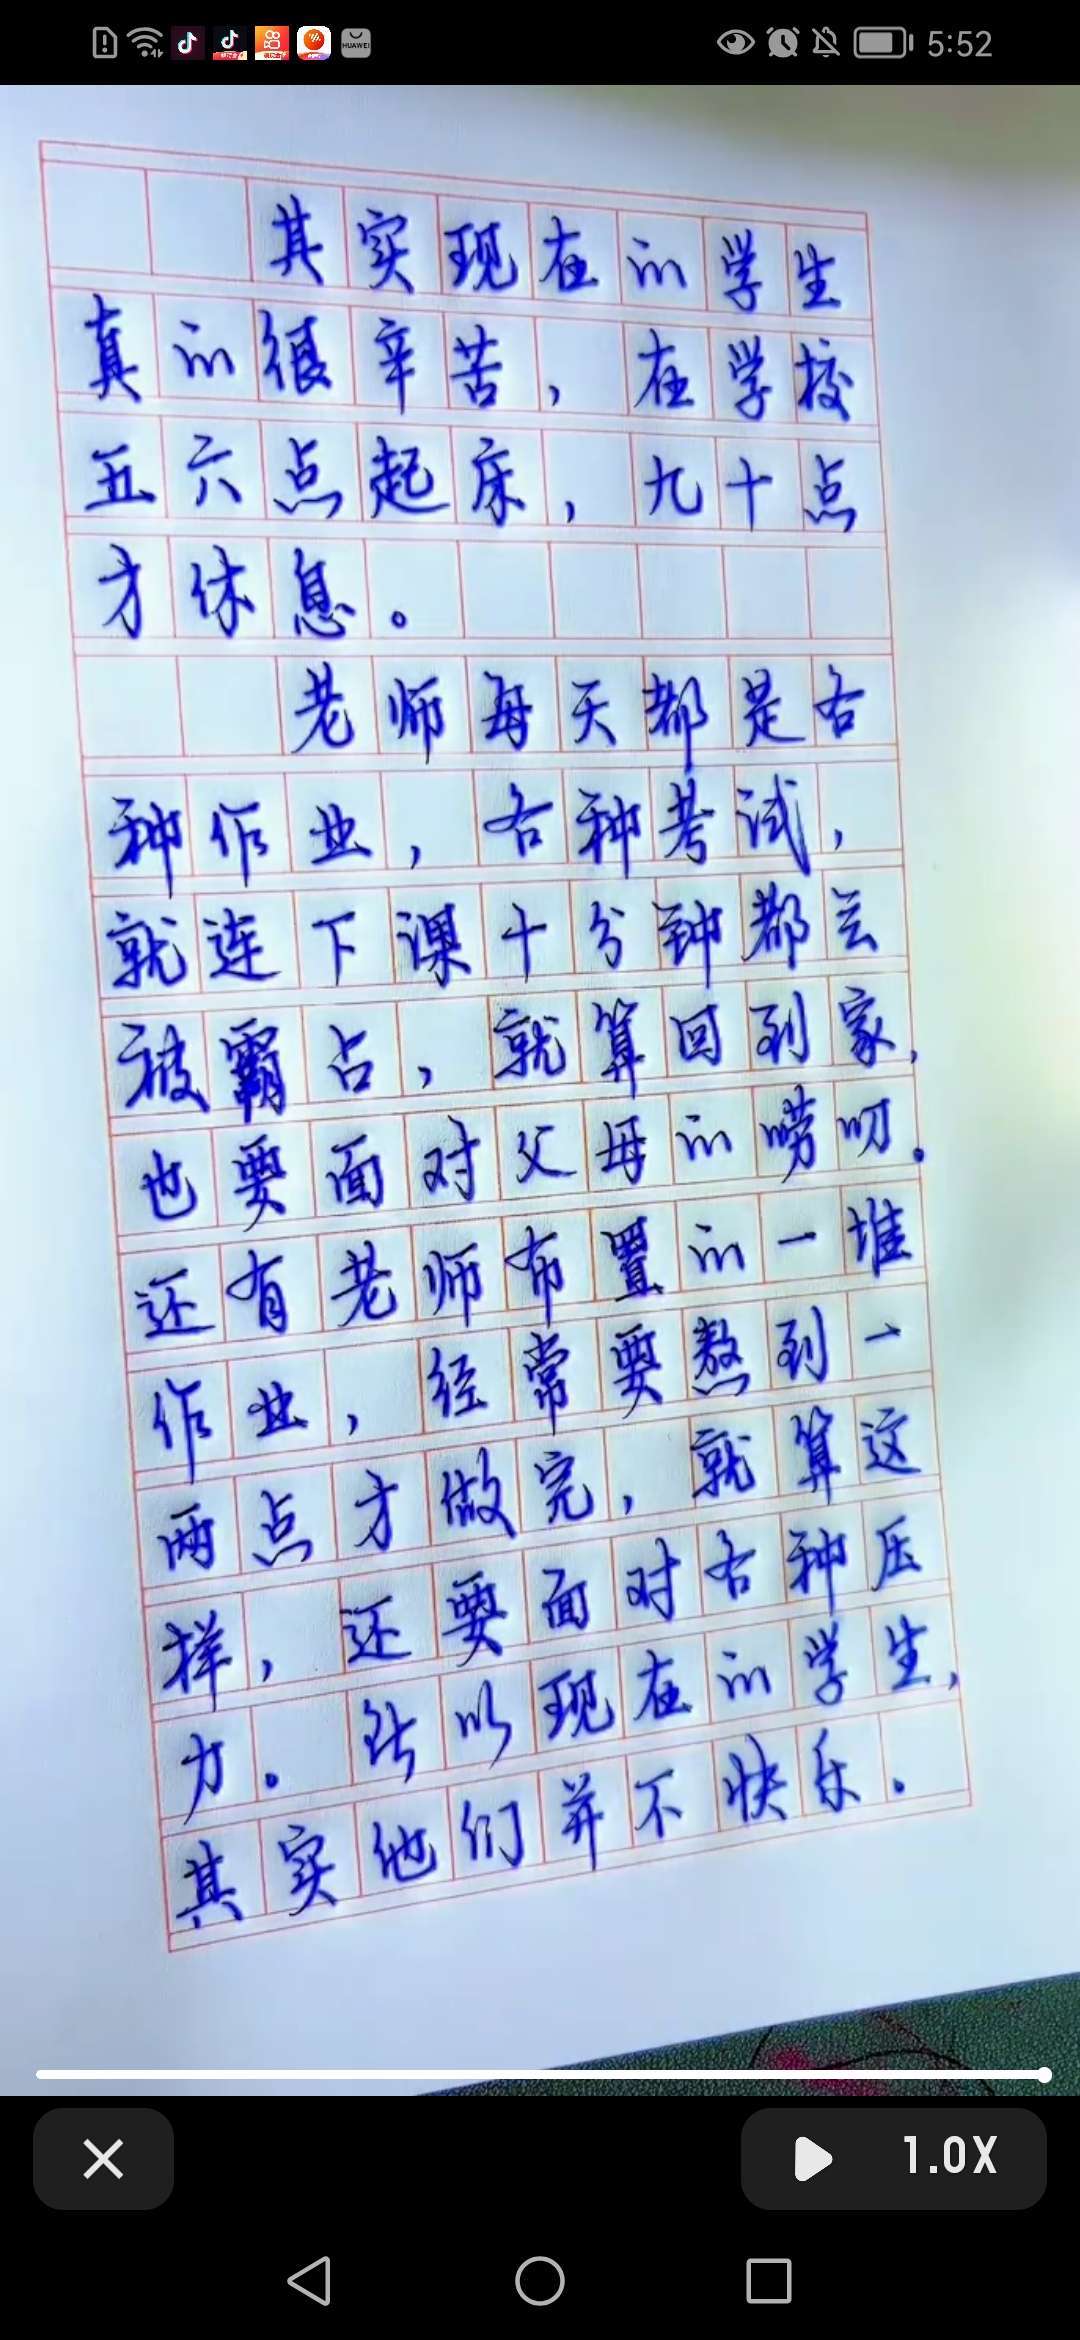 5:52
其实现在的学生
真的很辛苦，在学校
五六点起床，九十点
才休息。
老师每天都是各
种作业，各种考试，
就连下课十分钟都会
被霸占，就算回到家，
也要面对父母的唠叨。
还有老师布置的一堆
作业，经常要熬到一
两点才做完，就算这
样，还要面对各种压
力。所以现在的学生，
其实他们并不快乐。
1.0X